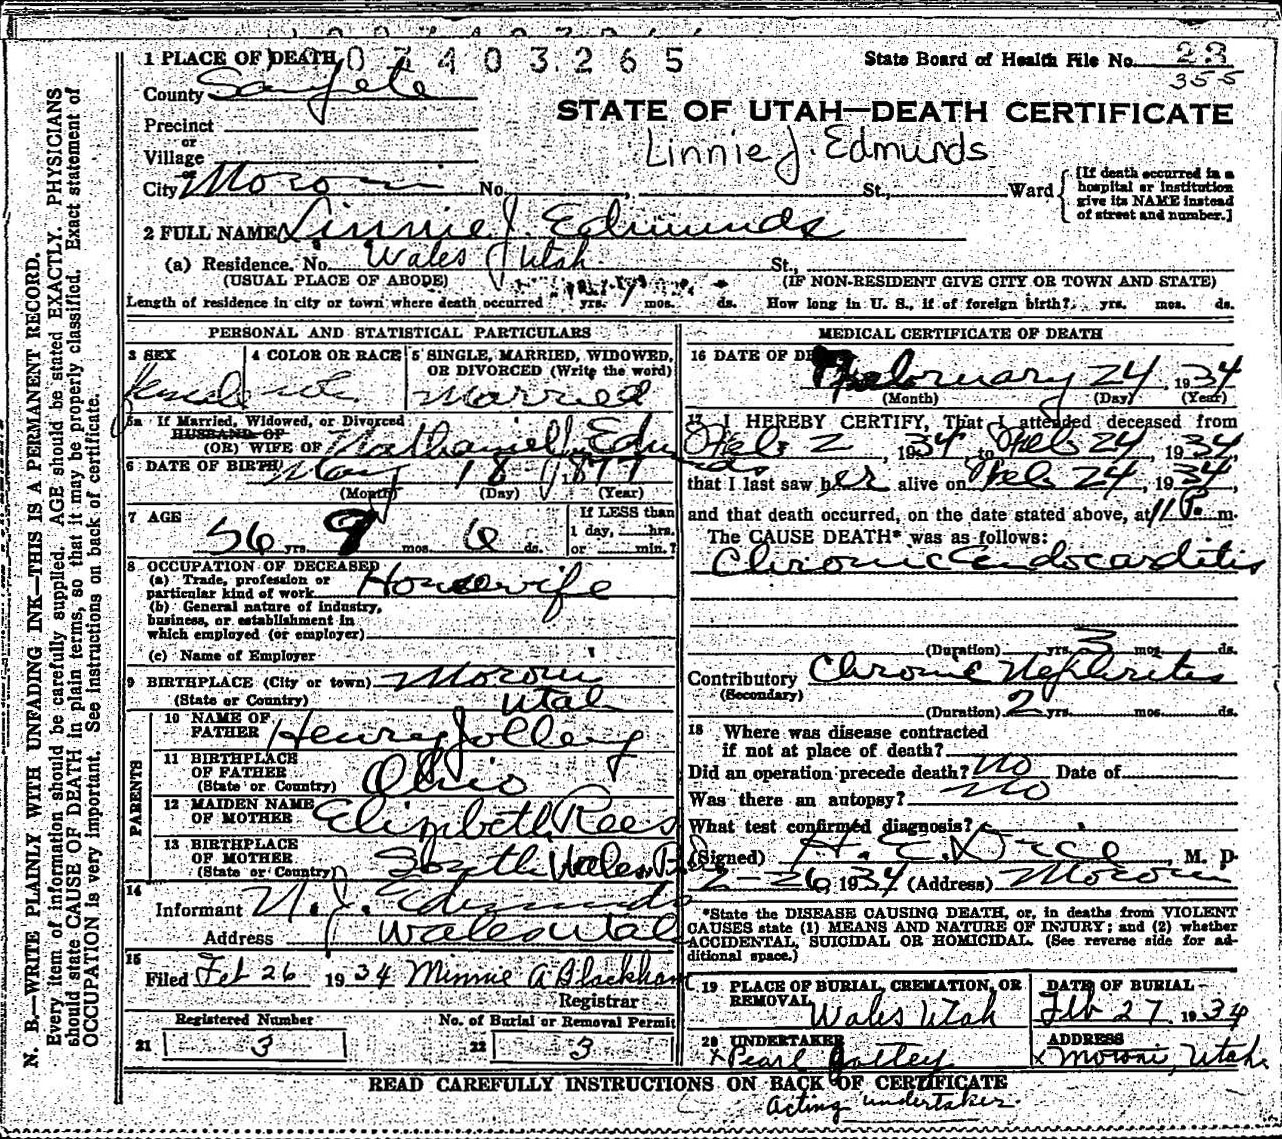 0 7 4 0 3 2 6 5
1 PLACE OF DEATH
State Board of Health File No. 23
355
County Sanpete
STATE OF UTAH—DEATH CERTIFICATE
Precinct
or
Linnie J. Edmunds
Village
or
City Moroni No. , St., Ward
[If death occurred in a hospital or institution give its NAME instead of street and number.]
2 FULL NAME Linnie J. Edmunds
(a) Residence. No. Wales Utah. St.,
(USUAL PLACE OF ABODE) (IF NON-RESIDENT GIVE CITY OR TOWN AND STATE)
Length of residence in city or town where death occurred yrs. mos. ds. How long in U. S., if of foreign birth? yrs. mos. ds.
PERSONAL AND STATISTICAL PARTICULARS
3 SEX female
4 COLOR OR RACE
5 SINGLE, MARRIED, WIDOWED, OR DIVORCED (Write the word)
Married
5a If Married, Widowed, or Divorced
HUSBAND OF
(OR) WIFE OF Nathaniel J. Edmunds
6 DATE OF BIRTH May 18 1877
(Month) (Day) (Year)
7 AGE 56 yrs. 9 mos. 6 ds.
If LESS than
1 day, hrs.
or min.?
8 OCCUPATION OF DECEASED
(a) Trade, profession or
particular kind of work Housewife
(b) General nature of industry,
business, or establishment in
which employed (or employer)
(c) Name of Employer
9 BIRTHPLACE (City or town) Moroni
(State or Country) Utah
PARENTS
10 NAME OF
FATHER Henry Jolley
11 BIRTHPLACE
OF FATHER
(State or Country) Ohio
12 MAIDEN NAME
OF MOTHER Elizabeth Rees
13 BIRTHPLACE
OF MOTHER
(State or Country) South Wales
14
Informant N. J. Edmunds
Address Wales Utah
15
Filed Feb 26 1934 Minnie A Blackham
Registrar
Registered Number
21 3
No. of Burial or Removal Permit
22 3
MEDICAL CERTIFICATE OF DEATH
16 DATE OF DE
February 24, 1934
(Month) (Day) (Year)
17 I HEREBY CERTIFY, That I attended deceased from
Feb 2, 1934 to Feb 24, 1934,
that I last saw her alive on Feb 24, 1934,
and that death occurred, on the date stated above, at 11 P. m.
The CAUSE DEATH* was as follows:
Chronic Endocarditis
(Duration) yrs. 3 mos. ds.
Contributory Chronic Nephritis
(Secondary)
(Duration) 2 yrs. mos. ds.
18 Where was disease contracted
if not at place of death?
Did an operation precede death? no Date of
Was there an autopsy? no
What test confirmed diagnosis?
(Signed) , M. D.
2-26, 1934 (Address) Moroni
*State the DISEASE CAUSING DEATH, or, in deaths from VIOLENT
CAUSES state (1) MEANS AND NATURE OF INJURY; and (2) whether
ACCIDENTAL, SUICIDAL OR HOMICIDAL. (See reverse side for ad-
ditional space.)
19 PLACE OF BURIAL, CREMATION, OR
REMOVAL Wales Utah
DATE OF BURIAL
Feb 27 1934
20 UNDERTAKER
x Pearl Jolley
ADDRESS
x Moroni, Utah
READ CAREFULLY INSTRUCTIONS ON BACK OF CERTIFICATE
Acting undertaker.
N. B.—WRITE PLAINLY WITH UNFADING INK—THIS IS A PERMANENT RECORD.
Every item of information should be carefully supplied. AGE should be stated EXACTLY. PHYSICIANS
should state CAUSE OF DEATH in plain terms, so that it may be properly classified. Exact statement of
OCCUPATION is very important. See instructions on back of certificate.